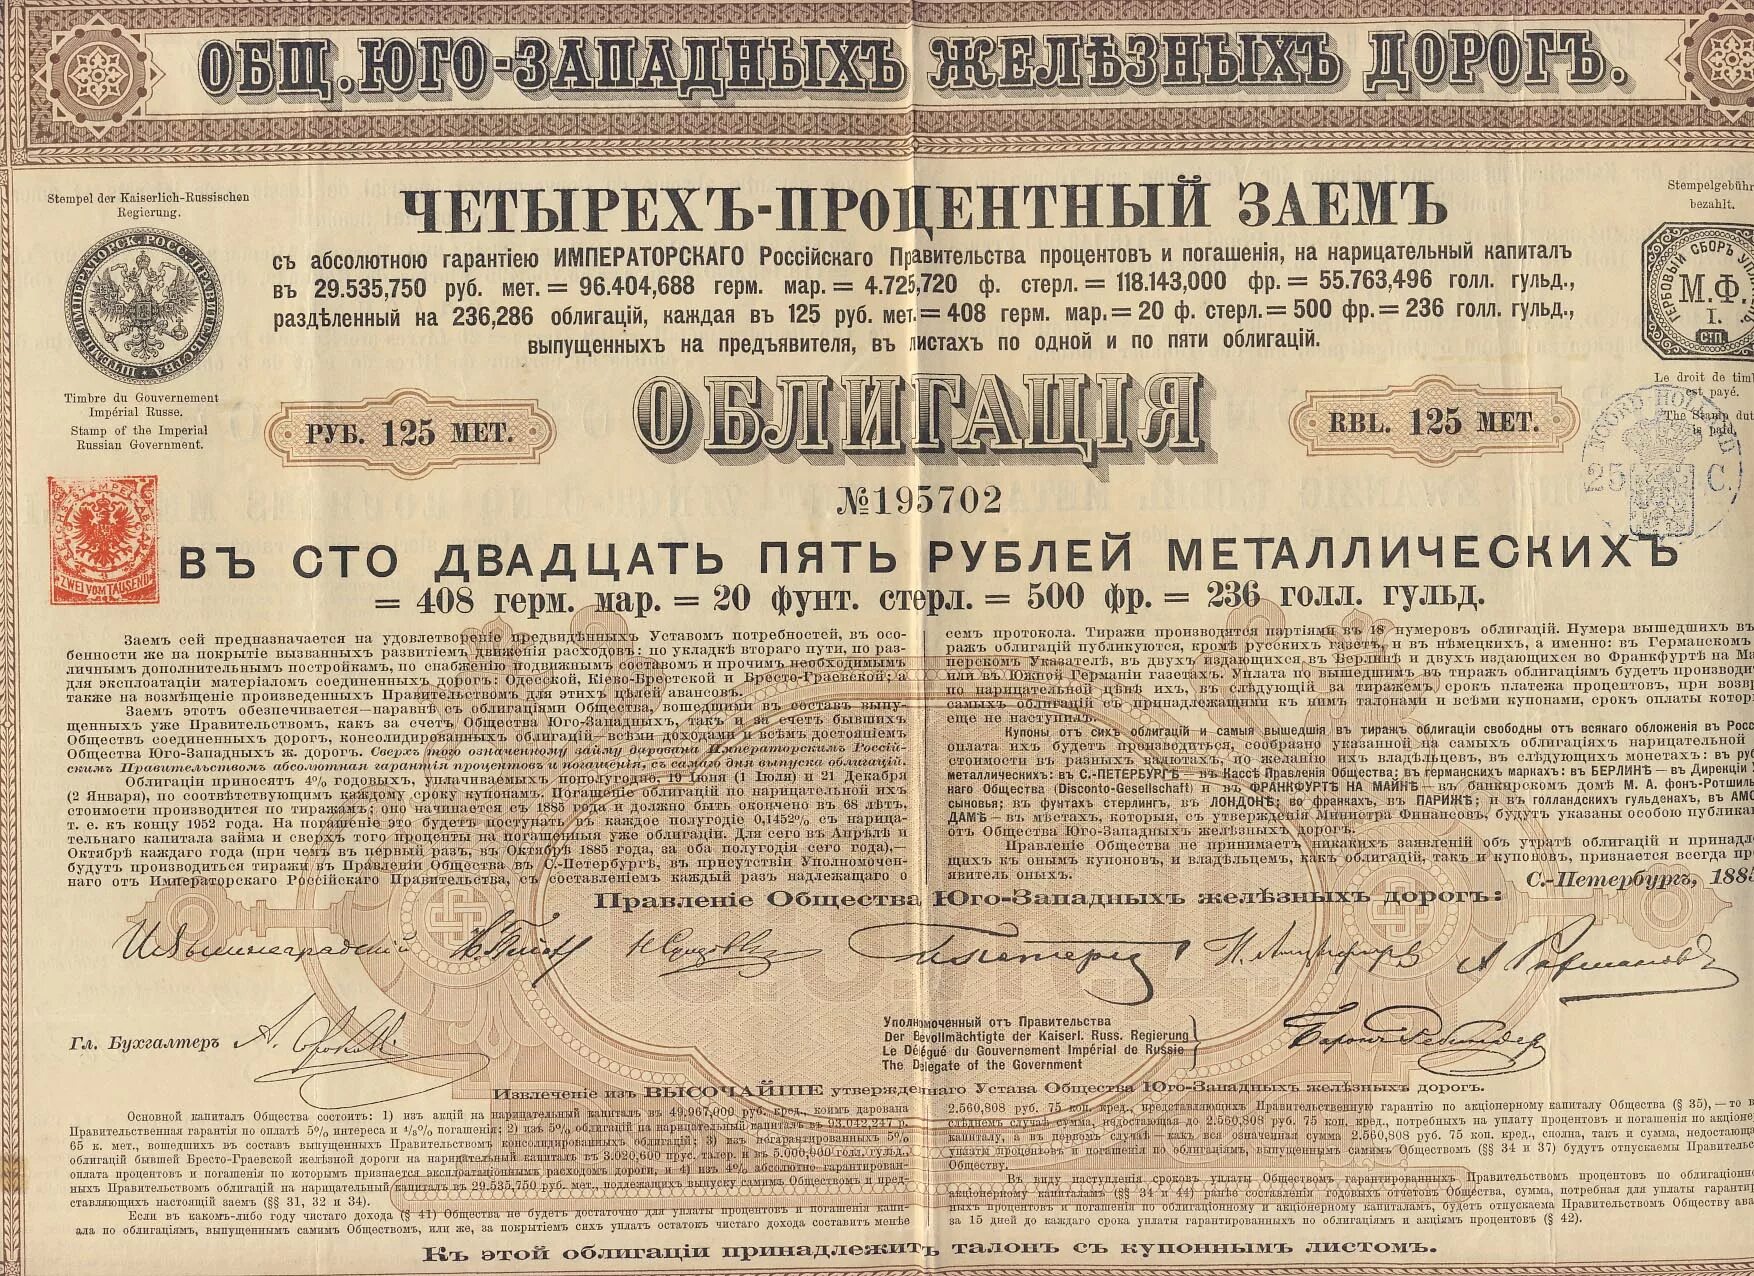 ОБЩ. ЮГО-ЗАПАДНЫХЪ ЖЕЛѢЗНЫХЪ ДОРОГЪ.
Stempel der Kaiserlich-Russischen
Regierung.
ПЕЧАТЬ ИМПЕРАТОРСК. РОСС. ПРАВИТЕЛЬСТВА
Timbre du Gouvernement
Impérial Russe.
Stamp of the Imperial
Russian Government.
ЧЕТЫРЕХЪ-ПРОЦЕНТНЫЙ ЗАЕМЪ
съ абсолютною гарантіею ИМПЕРАТОРСКАГО Россійскаго Правительства процентовъ и погашенія, на нарицательный капиталъ
въ 29.535,750 руб. мет. = 96.404,688 герм. мар. = 4.725,720 ф. стерл. = 118.143,000 фр. = 55.763,496 голл. гульд.,
раздѣленный на 236,286 облигацій, каждая въ 125 руб. мет. = 408 герм. мар. = 20 ф. стерл. = 500 фр. = 236 голл. гульд.,
выпущенныхъ на предъявителя, въ листахъ по одной и по пяти облигацій.
Stempelgebühr
bezahlt.
ГЕРБОВЫЙ СБОРЪ
М.Ф.
I.
С.П.
Le droit de
est payé.
The Stamp
is paid.
РУБ. 125 МЕТ.
ОБЛИГАЦІЯ
RBL. 125 MET.
NOORD-HOLLAND
25 C.
№ 195702
REICHS-STEMPEL-ABGABE
ZWEI VOM TAUSEND
ВЪ СТО ДВАДЦАТЬ ПЯТЬ РУБЛЕЙ МЕТАЛЛИЧЕСКИХЪ
= 408 герм. мар. = 20 фунт. стерл. = 500 фр. = 236 голл. гульд.
Заемъ сей предназначается на удовлетвореніе предвидѣнныхъ Уставомъ потребностей, въ осо-
бенности же на покрытіе вызванныхъ развитіемъ движенія расходовъ: по укладкѣ втораго пути, по раз-
личнымъ дополнительнымъ постройкамъ, по снабженію подвижнымъ составомъ и прочимъ необходимымъ
для эксплоатаціи матеріаломъ соединенныхъ дорогъ: Одесской, Кіево-Брестской и Бресто-Граевской; а
также на возмѣщеніе произведенныхъ Правительствомъ для этихъ цѣлей авансовъ.
Заемъ этотъ обезпечивается—наравнѣ съ облигаціями Общества, вошедшими въ составъ выпу-
щенныхъ уже Правительствомъ, какъ за счетъ Общества Юго-Западныхъ, такъ и за счетъ бывшихъ
Обществъ соединенныхъ дорогъ, консолидированныхъ облигацій—всѣми доходами и всѣмъ достояніемъ
Общества Юго-Западныхъ ж. дорогъ. Сверхъ того означенному займу дарована Императорскимъ Россій-
скимъ Правительствомъ абсолютная гарантія процентовъ и погашенія, съ самаго дня выпуска облигацій.
Облигаціи приносятъ 4% годовыхъ, уплачиваемыхъ пополугодно, 19 Іюня (1 Іюля) и 21 Декабря
(2 Января), по соотвѣтствующимъ каждому сроку купонамъ. Погашеніе облигацій по нарицательной ихъ
стоимости производится по тиражамъ; оно начинается съ 1885 года и должно быть окончено въ 68 лѣтъ,
т. е. къ концу 1952 года. На погашеніе это будетъ поступать въ каждое полугодіе 0,1452% съ нарица-
тельнаго капитала займа и сверхъ того проценты на погашенныя уже облигаціи. Для сего въ Апрѣлѣ и
Октябрѣ каждаго года (при чемъ въ первый разъ, въ Октябрѣ 1885 года, за оба полугодія сего года),—
будутъ производиться тиражи въ Правленіи Общества въ С.-Петербургѣ, въ присутствіи Уполномочен-
наго отъ Императорскаго Россійскаго Правительства, съ составленіемъ каждый разъ надлежащаго о
семъ протокола. Тиражи производятся партіями въ 18 нумеровъ облигацій. Нумера вышедшихъ въ
ражъ облигацій публикуются, кромѣ русскихъ газетъ, и въ нѣмецкихъ, а именно: въ Германскомъ
перскомъ Указателѣ, въ двухъ издающихся въ Берлинѣ и двухъ издающихся во Франкфуртѣ на
или въ Южной Германіи газетахъ. Уплата по вышедшимъ въ тиражъ облигаціямъ будетъ
по нарицательной цѣнѣ ихъ, въ слѣдующій за тиражемъ срокъ платежа процентовъ, при
самыхъ облигацій съ принадлежащими къ нимъ талонами и всѣми купонами, срокъ оплаты
еще не наступилъ.
Купоны отъ сихъ облигацій и самыя вышедшія въ тиражъ облигаціи свободны отъ всякаго обложенія въ
оплата ихъ будетъ производиться, сообразно указанной на самыхъ облигаціяхъ нарицательной
стоимости въ разныхъ валютахъ, по желанію ихъ владѣльцевъ, въ слѣдующихъ монетахъ: въ
металлическихъ: въ С.-ПЕТЕРБУРГѢ—въ Кассѣ Правленія Общества; въ германскихъ маркахъ: въ БЕРЛИНѢ—въ Дирекціи
наго Общества (Disconto-Gesellschaft) и въ ФРАНКФУРТѢ НА МАЙНѢ—въ банкирскомъ домѣ М. А. фонъ-
сыновья; въ фунтахъ стерлинг., въ ЛОНДОНѢ; во франкахъ, въ ПАРИЖѢ; и въ голландскихъ гульденахъ, въ
ДАМѢ—въ мѣстахъ, которыя, съ утвержденія Министра Финансовъ, будутъ указаны особою
отъ Общества Юго-Западныхъ желѣзныхъ дорогъ.
Правленіе Общества не принимаетъ никакихъ заявленій объ утратѣ облигацій и
щихъ къ онымъ купоновъ, и владѣльцемъ, какъ облигацій, такъ и купоновъ, признается всегда
явитель оныхъ.
С.-Петербургъ, 1885
Правленіе Общества Юго-Западныхъ желѣзныхъ дорогъ:
И. Вышнеградскій
Гл. Бухгалтеръ
Уполномоченный отъ Правительства
Der Bevollmächtigte der Kaiserl. Russ. Regierung
Le Délégué du Gouvernement Impérial de Russie
The Delegate of the Government
Извлеченіе изъ ВЫСОЧАЙШЕ утвержденнаго Устава Общества Юго-Западныхъ желѣзныхъ дорогъ.
Основной капиталъ Общества состоитъ: 1) изъ акцій на нарицательный капиталъ въ 49,967,000 руб. кред., коимъ дарована
Правительственная гарантія по оплатѣ 5% интереса и погашенія; 2) изъ 5% облигацій на нарицательный капиталъ въ 93,042,247 р.
65 к. мет., вошедшихъ въ составъ выпущенныхъ Правительствомъ консолидированныхъ облигацій; 3) изъ негарантированныхъ 5%
облигацій бывшей Бресто-Граевской желѣзной дороги на нарицательный капиталъ въ 3.020,600 прус. талер. и въ 5.000,000 голл. гульд.,
оплата процентовъ и погашенія по которымъ признается эксплоатаціоннымъ расходомъ дороги, и 4) изъ 4% абсолютно гарантирован-
ныхъ Правительствомъ облигацій на нарицательный капиталъ въ 29.535,750 руб. мет., подлежащихъ выпуску самимъ Обществомъ и пред-
ставляющихъ настоящій заемъ (§§ 31, 32 и 34).
Если въ какомъ-либо году чистаго дохода (§ 41) Общества не будетъ достаточно для уплаты процентовъ и погашенія капи-
ала по облигаціямъ, выпущеннымъ самимъ Обществомъ, или же, за покрытіемъ сихъ уплатъ остатокъ чистаго дохода составитъ менѣе
2.560,808 руб. 75 коп. кред., представляющихъ Правительственную гарантію по акціонерному капиталу Общества (§ 35),—то
слѣднемъ случаѣ сумма, недостающая до 2.560,808 руб. 75 коп. кред., потребныхъ на уплату процентовъ и погашенія по
капиталу, а въ первомъ случаѣ—какъ вся означенная сумма 2.560,808 руб. 75 коп. кред., сполна, такъ и сумма,
уплаты процентовъ и погашенія по облигаціямъ, выпущеннымъ самимъ Обществомъ (§§ 34 и 37) будутъ отпускаемы
Обществу.
Въ виду наступленія сроковъ уплаты Обществомъ гарантированныхъ Правительствомъ процентовъ по
акціонерному капиталамъ (§§ 34 и 44) ранѣе составленія годовыхъ отчетовъ Общества, сумма, потребная для уплаты
ныхъ процентовъ и погашенія по облигаціонному и акціонерному капиталамъ, будетъ отпускаема Правительствомъ Обществу
за 15 дней до каждаго срока уплаты гарантированныхъ по облигаціямъ и акціямъ процентовъ (§ 42).
Къ этой облигаціи принадлежитъ талонъ съ купоннымъ листомъ.